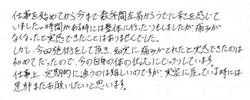 仕事を始めてから今まで数年間左肩からうでに不調を感じて
いました。時間がある時には整体に行ったりもしましたが痛みが
なくなったと実感できたことはありませんでした。
しかし今回施術をして頂き初めて痛みがとれたと実感できたのは
初めてだったので、今の自分の体の状況にビックリしています。
仕事上、定期的に通うのは難しいのですが実家に戻っている時には
是非またお願いしたいと思います。